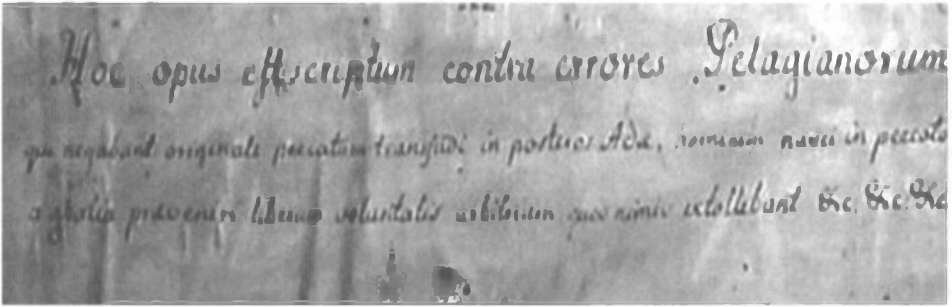 Hoc opus est scriptum contra errores Pelagianorum
qui negabant originale peccatum transfudi in posteros Adæ, in peccato
a gratia præveniri liberum voluntatis arbitrium quo nimis extollebant &c. &c. &c